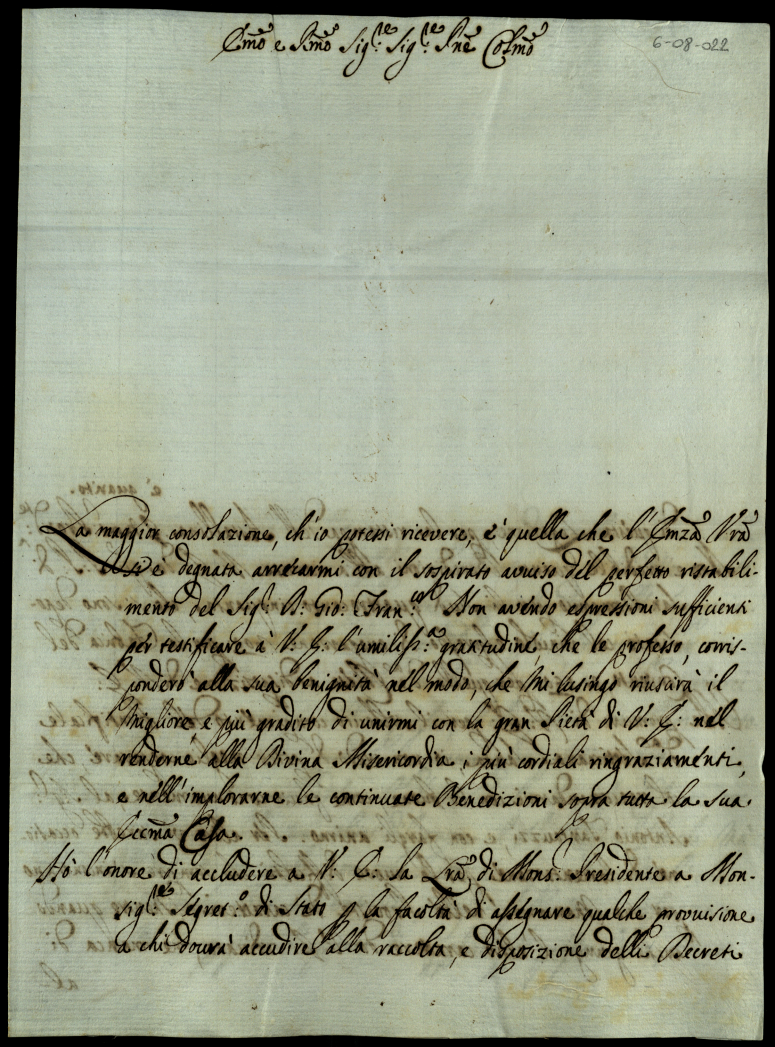 Emo e Rmo Sig:re Sig:re Pne Colmo
6-08-022
è quanto.
La maggior consolazione, ch'io potessi ricevere, è quella che l'Emza Vra
si è degnata arrecarmi con il sospirato avviso del perfetto ristabili-
mento del Sig: D: Gio: Fran:co Non avendo espressioni sufficienti
per testificare à V: E: l'umiliss:a gratitudine che le professo, corris-
ponderò alla sua benignità nel modo, che mi lusingo riuscirà il
migliore, e più gradito di unirmi con la gran Pietà di V: E: nel
renderne alla Divina Misericordia i più cordiali ringraziamenti,
e nell'implorarne le continuate Benedizioni sopra tutta la sua
Eccma Casa.
Hò l'onore di accludere a V: E: la Lra di Mons: Presidente a Mon-
sig:re Segret:o di Stato p la facoltà di assegnare qualche provvisione
a chi dovrà accudire alla raccolta, e disposizione delli Decreti